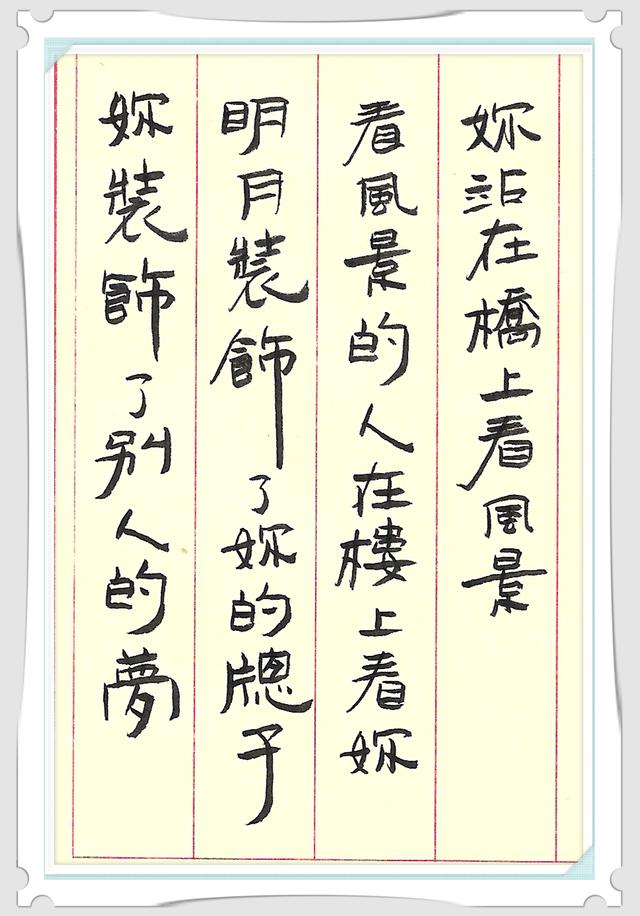 妳站在橋上看風景
看風景的人在樓上看妳
明月裝飾了妳的牕子
妳裝飾了別人的夢